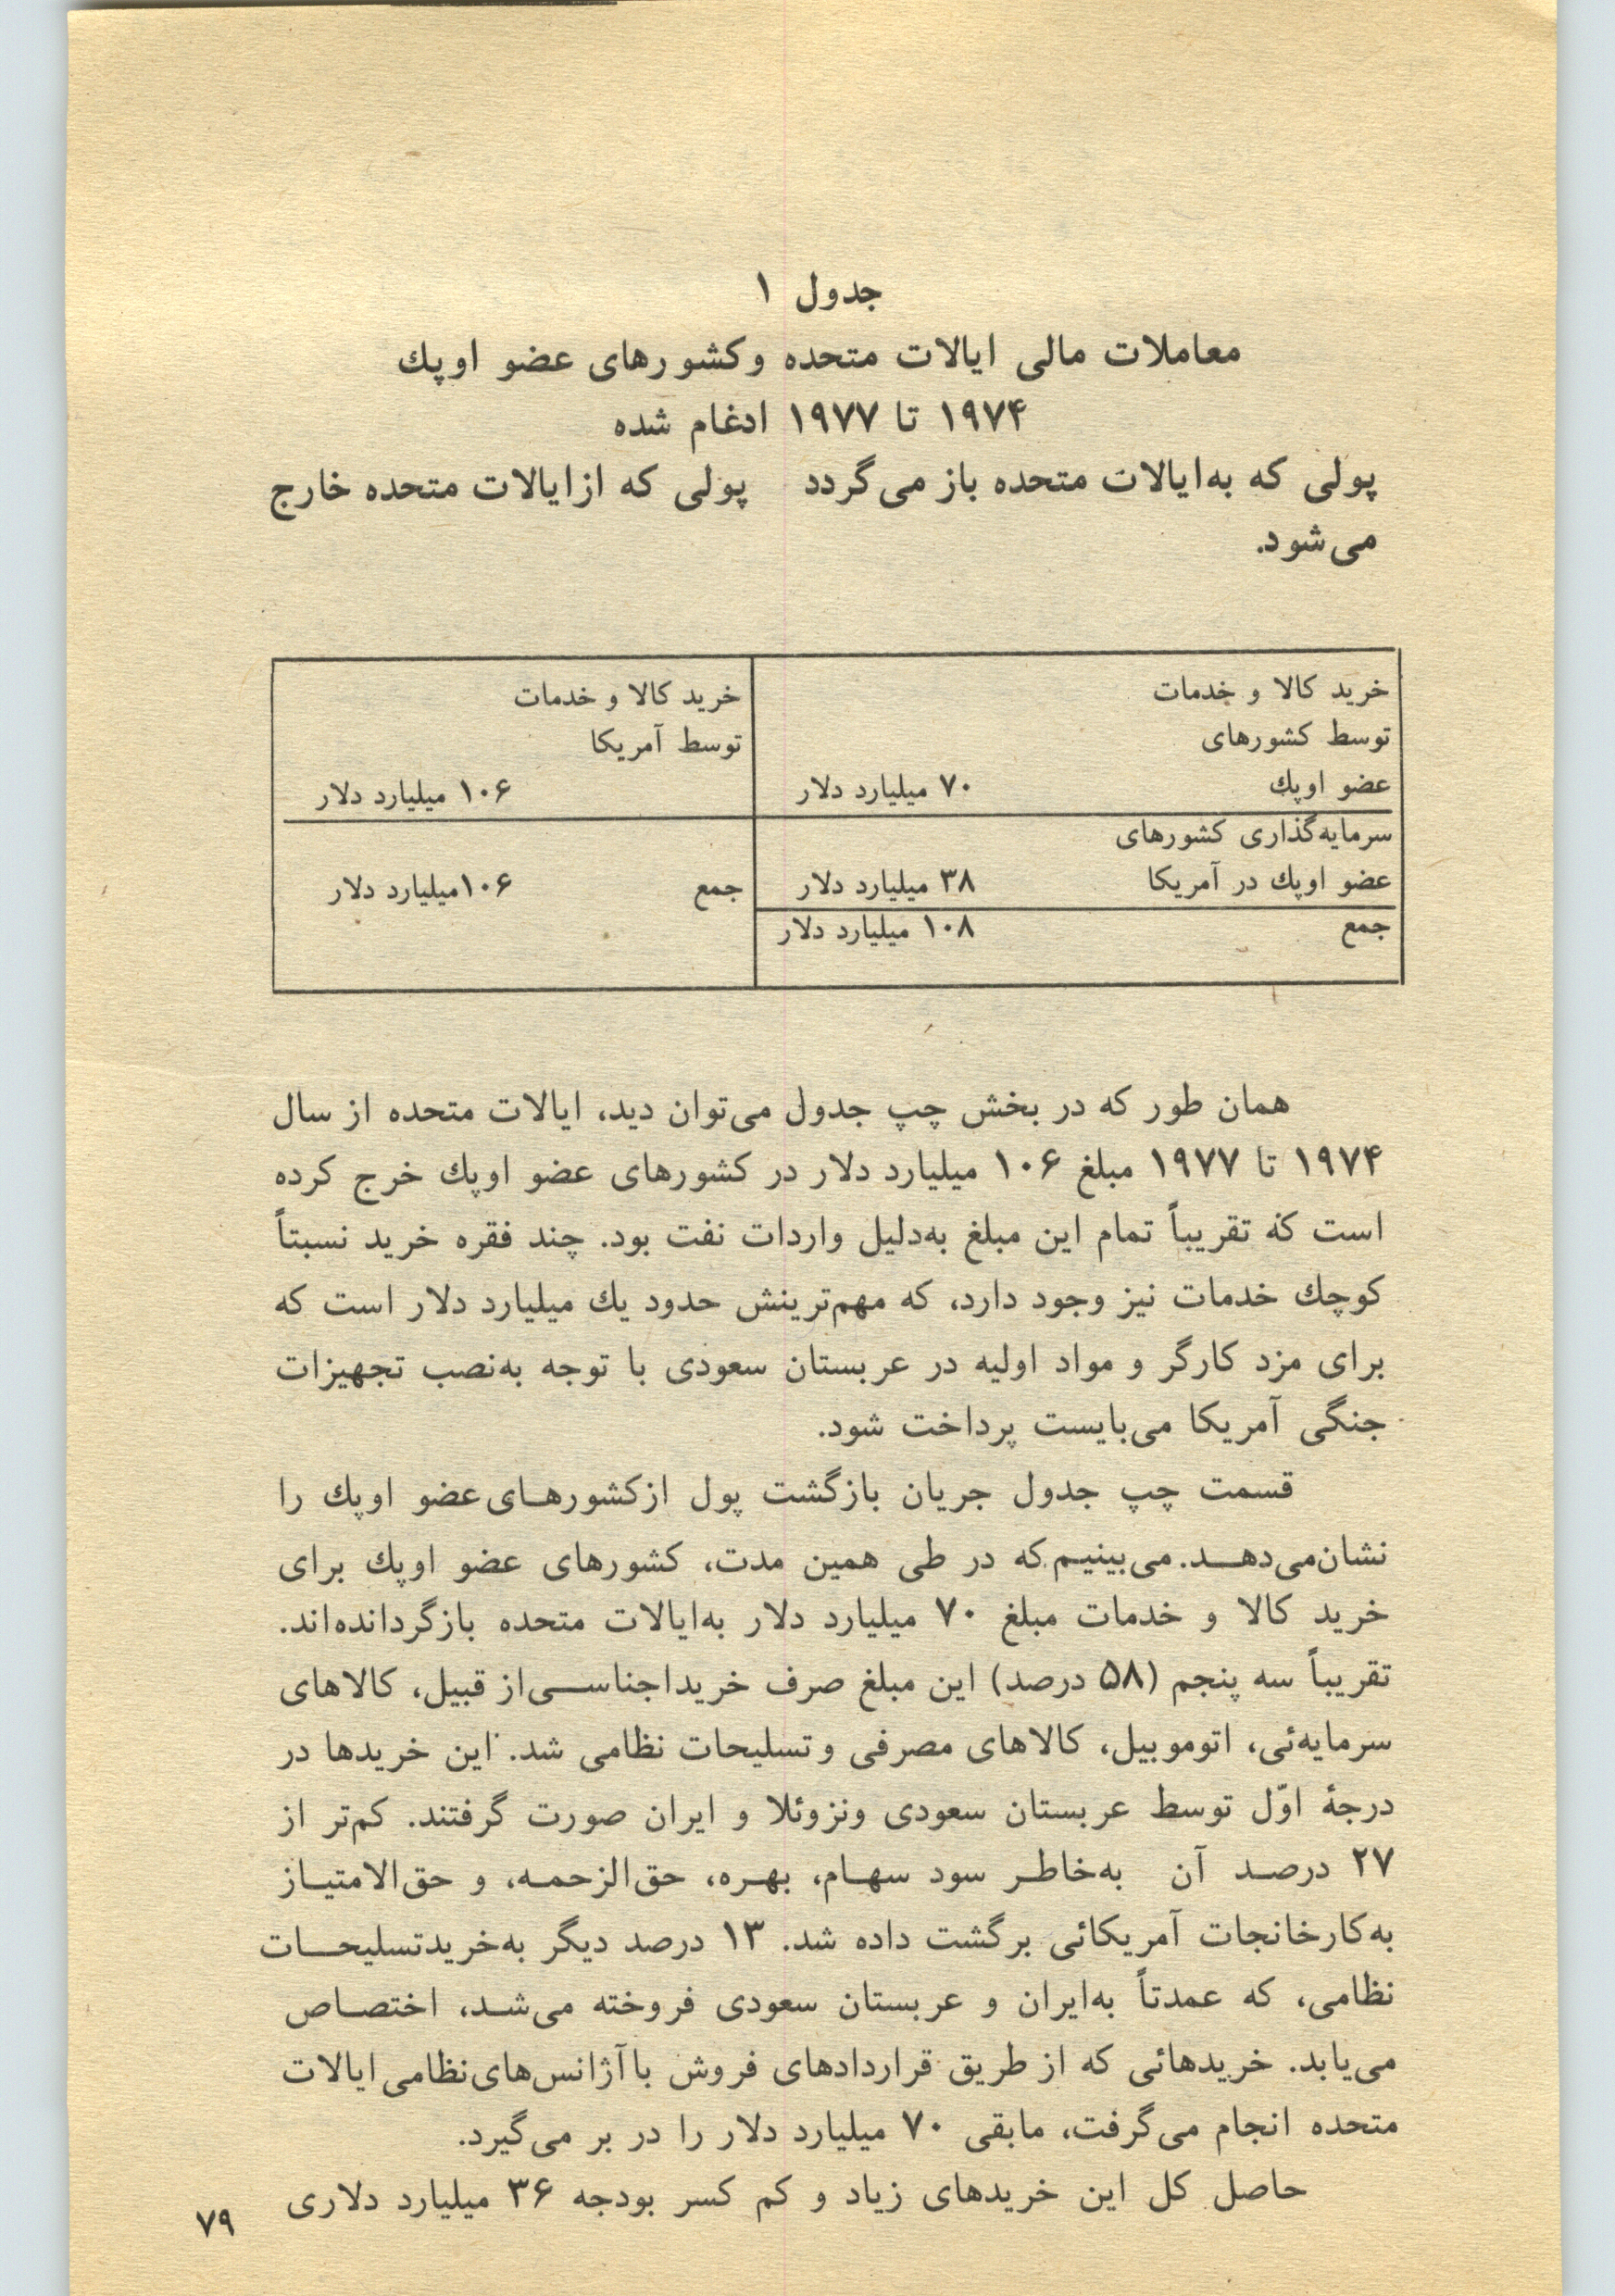 جدول ۱
معاملات مالی ایالات متحده وکشورهای عضو اوپك
۱۹۷۴ تا ۱۹۷۷ ادغام شده
پولی که به‌ایالات متحده باز می‌گردد    پولی که ازایالات متحده خارج
می‌شود.
خرید کالا و خدمات
توسط کشورهای
عضو اوپك ۷۰ میلیارد دلار
سرمایه‌گذاری کشورهای
عضو اوپك در آمریکا ۳۸ میلیارد دلار
جمع ۱۰۸ میلیارد دلار
خرید کالا و خدمات
توسط آمریکا
۱۰۶ میلیارد دلار
جمع ۱۰۶میلیارد دلار
همان طور که در بخش چپ جدول می‌توان دید، ایالات متحده از سال
۱۹۷۴ تا ۱۹۷۷ مبلغ ۱۰۶ میلیارد دلار در کشورهای عضو اوپك خرج کرده
است که تقریباً تمام این مبلغ به‌دلیل واردات نفت بود. چند فقره خرید نسبتاً
کوچك خدمات نیز وجود دارد، که مهم‌ترینش حدود یك میلیارد دلار است که
برای مزد کارگر و مواد اولیه در عربستان سعودی با توجه به‌نصب تجهیزات
جنگی آمریکا می‌بایست پرداخت شود.
قسمت چپ جدول جریان بازگشت پول ازکشورهـای عضو اوپك را
نشان‌می‌دهـــد. می‌بینیـم که در طی همین مدت، کشورهای عضو اوپك برای
خرید کالا و خدمات مبلغ ۷۰ میلیارد دلار به‌ایالات متحده بازگردانده‌اند.
تقریباً سه پنجم (۵۸ درصد) این مبلغ صرف خریداجناســـی‌از قبیل، کالاهای
سرمایه‌ئی، اتوموبیل، کالاهای مصرفی وتسلیحات نظامی شد. این خریدها در
درجهٔ اوّل توسط عربستان سعودی ونزوئلا و ایران صورت گرفتند. کم‌تر از
۲۷ درصـد آن به‌خاطـر سود سهـام، بهـره، حق‌الزحمـه، و حق‌الامتیـاز
به‌کارخانجات آمریکائی برگشت داده شد. ۱۳ درصد دیگر به‌خریدتسلیحـــات
نظامی، که عمدتاً به‌ایران و عربستان سعودی فروخته می‌شـد، اختصـاص
می‌یابد. خریدهائی که از طریق قراردادهای فروش با آژانس‌های‌نظامی ایالات
متحده انجام می‌گرفت، مابقی ۷۰ میلیارد دلار را در بر می‌گیرد.
حاصل کل این خریدهای زیاد و کم کسر بودجه ۳۶ میلیارد دلاری
۷۹